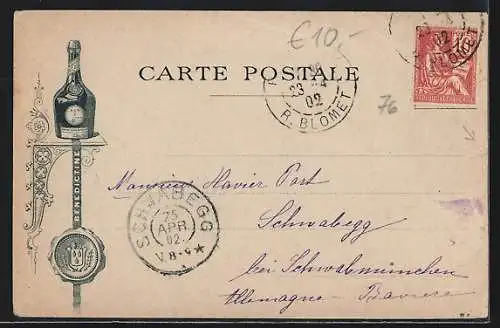 €10,-
CARTE POSTALE
23
02
R. BLOMET
02
BLOMET
76
BÉNÉDICTINE
SCHWABEGG
25
APR
02.
V. 8-9
Monsieur Xavier Post
Schwabegg
bei Schwabmünchen
Allemagne - Baviere